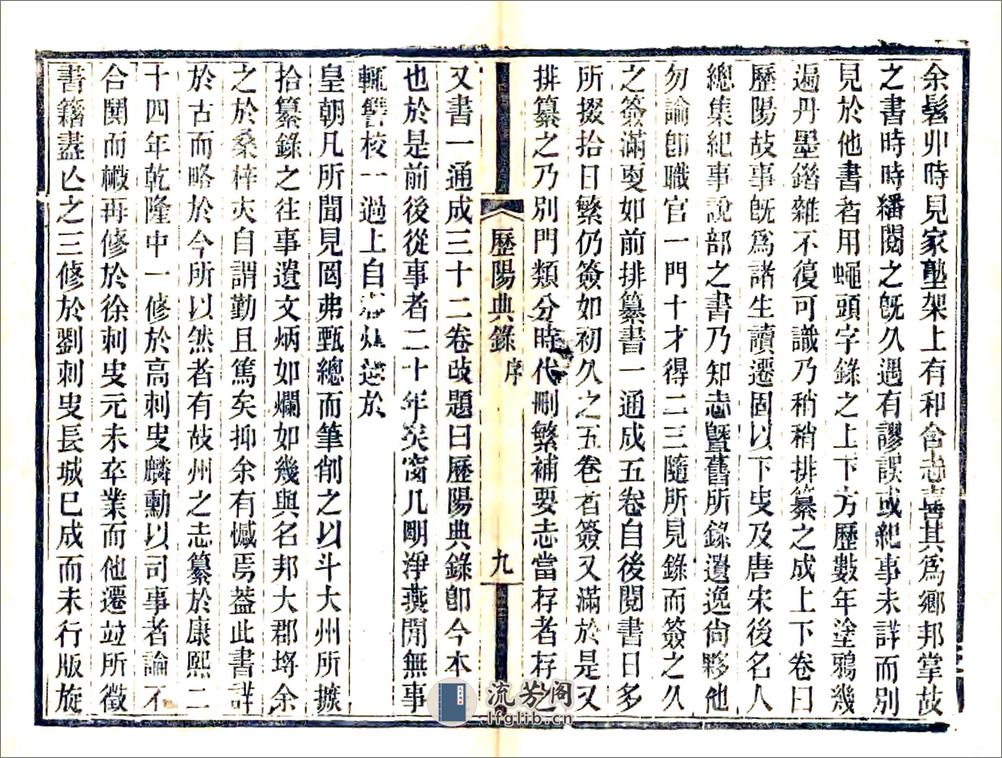 余髫丱時見家塾架上有和含志書其為鄉邦掌故
之書時時繙閱之旣久遇有謬誤或紀事未詳而別
見於他書者用蠅頭字錄之上下方歷數年塗鴉幾
遍丹墨錯雜不復可識乃稍稍排纂之成上下卷曰
歷陽故事旣爲諸生讀遷固以下史及唐宋後名人
總集紀事說部之書乃知志曁舊所錄遺逸尙夥他
勿論卽職官一門十才得二三隨所見錄而簽之久
之簽滿更如前排纂書一通成五卷自後閱書日多
所掇拾日繁仍簽如初久之五卷者簽又滿於是又
排纂之乃別門類分時代刪繁補要志當存者存之
歷陽典錄 序 九
又書一通成三十二卷改題曰歷陽典錄卽今本
也於是前後從事者二十年矣窗几明淨燕閒無事
輒讐校一過上自 於
皇朝凡所聞見罔弗甄總而筆削之以斗大州所摭
拾纂錄之往事遺文炳如爛如幾與名邦大郡埒余
之於桑梓夫自謂勤且篤矣抑余有憾焉葢此書詳
於古而略於今所以然者有故州之志纂於康熙二
十四年乾隆中一修於高刺史麟勳以司事者論不
合閧而輟再修於徐刺史元未卒業而他遷竝所徵
書籍盡亾之三修於劉刺史長城已成而未行版旋
流芳阁
lfglib.cn